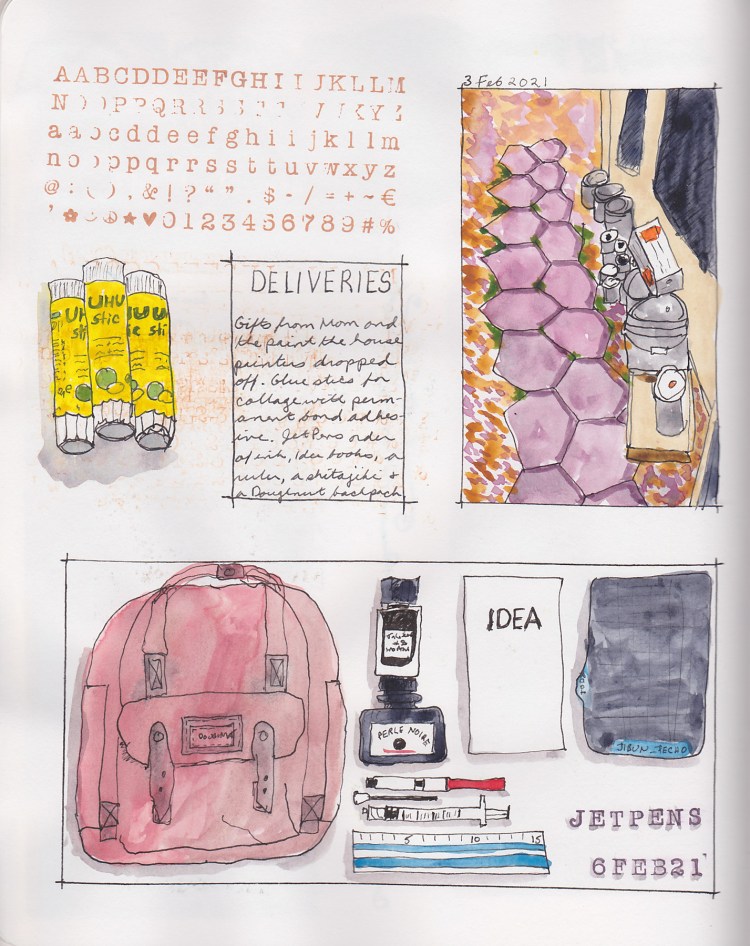 AABCDDEEFGHIIJKLLM
N OPPQRRS
aabcddeefghiijkllm
nooppqrrssttuvwxyz
@:(),&!?“”.$-/=+~€
'✿☺☮★♥0123456789#%
3 Feb 2021
DELIVERIES
Gifts from Mom and
the paint the house
painters dropped
off. Glue sticks for
collage with perm-
anent bond adhes-
ive. JetPens order
of ink, Idea books, a
ruler, a shitajiki &
a Doughnut backpack
UHU
stic
UHU
stic
PERLE NOIRE
IDEA
JIBUN_TECHO
5 10 15
JETPENS
6FEB21